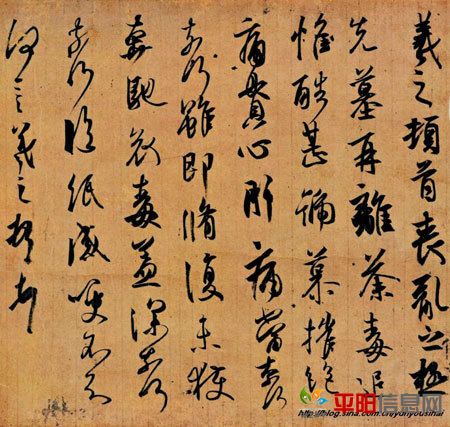 羲之頓首喪亂之極
先墓再離荼毒追
惟酷甚號慕摧絶
痛貫心肝痛當奈何
奈何雖即脩復未獲
奔馳哀毒益深奈何
奈何臨紙感哽不知
何言羲之頓首頓首
平阳信息网
http://blog.sina.com.cn/yunyousihai